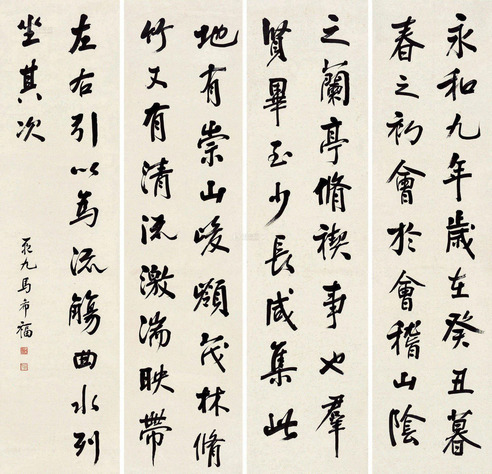 永和九年歲在癸丑暮
春之初會於會稽山陰
之蘭亭脩禊事也羣
賢畢至少長咸集此
地有崇山峻領茂林脩
竹又有清流激湍映帶
左右引以為流觴曲水列
坐其次
九馬福